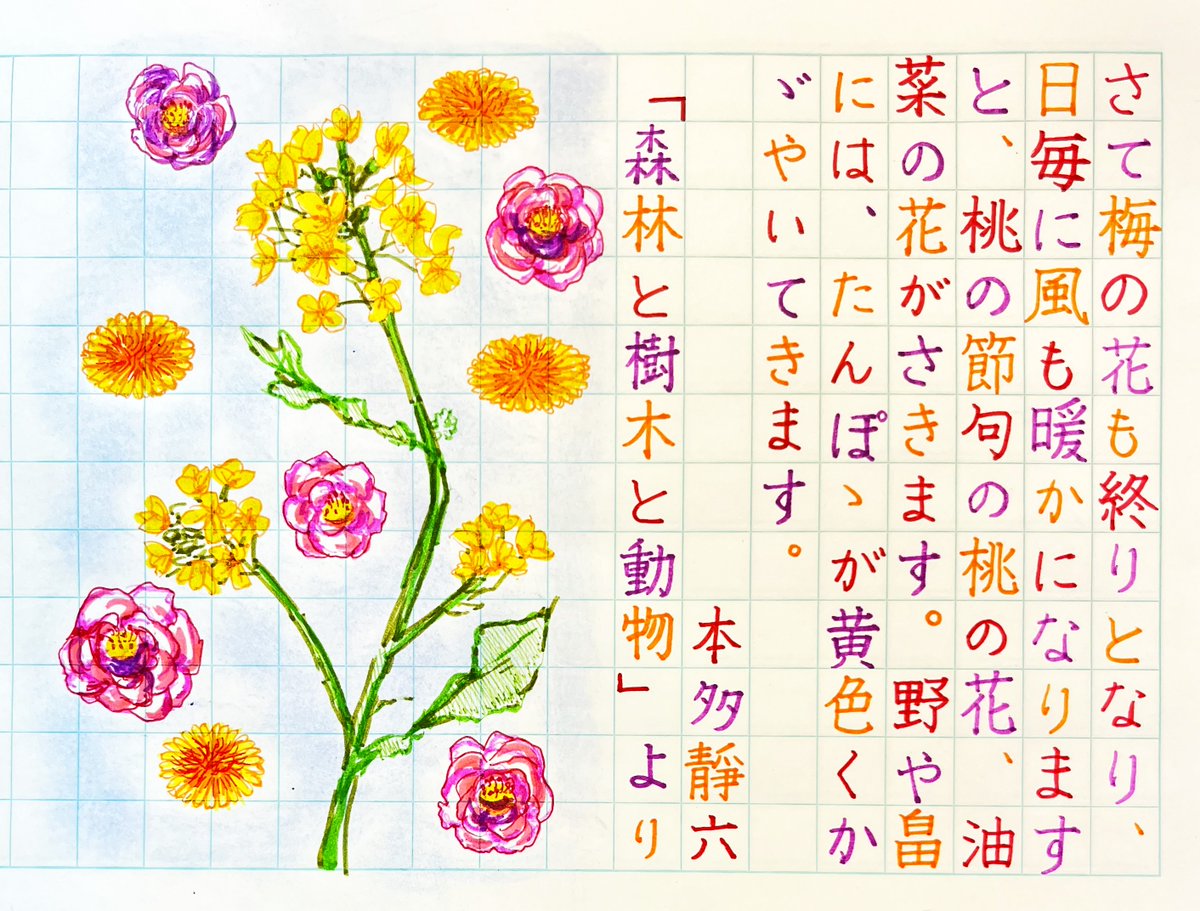 さて梅の花も終りとなり、
日毎に風も暖かになります
と、桃の節句の桃の花、油
菜の花がさきます。野や畠
には、たんぽゝが黄色くか
ゞやいてきます。
本多靜六
「森林と樹木と動物」より